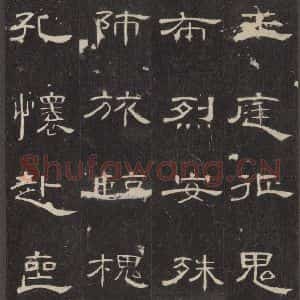 王庭征鬼
布烈安殊
師旅臨槐
孔懷赴喪
Shufawang.CN